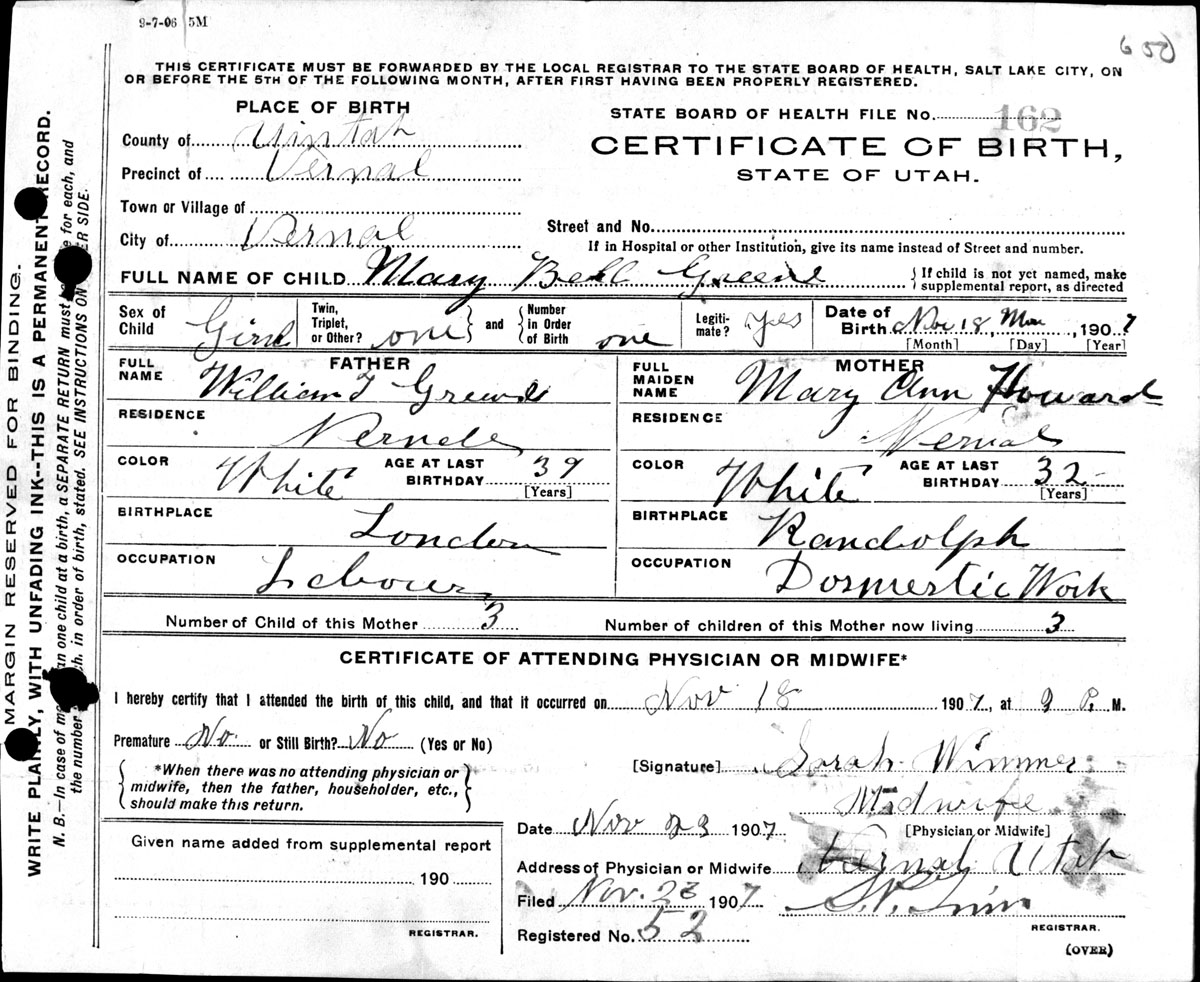 9-7-06 5M
650
THIS CERTIFICATE MUST BE FORWARDED BY THE LOCAL REGISTRAR TO THE STATE BOARD OF HEALTH, SALT LAKE CITY, ON
OR BEFORE THE 5TH OF THE FOLLOWING MONTH, AFTER FIRST HAVING BEEN PROPERLY REGISTERED.
PLACE OF BIRTH
County of Uintah
Precinct of Vernal
Town or Village of
City of Vernal
STATE BOARD OF HEALTH FILE No. 162
CERTIFICATE OF BIRTH,
STATE OF UTAH.
Street and No.
If in Hospital or other Institution, give its name instead of Street and number.
FULL NAME OF CHILD Mary Bell Greene
If child is not yet named, make
supplemental report, as directed
Sex of Child Girl
Twin, Triplet, or Other? one and Number in Order of Birth one
Legiti-mate? yes
Date of Birth Nov 18, Mon, 1907
[Month] [Day] [Year]
FATHER
FULL NAME William Greene
RESIDENCE
COLOR White AGE AT LAST BIRTHDAY 39
[Years]
BIRTHPLACE London
OCCUPATION Labourer
MOTHER
FULL MAIDEN NAME Mary Ann Howard
RESIDENCE Vernal
COLOR White AGE AT LAST BIRTHDAY 32
[Years]
BIRTHPLACE Randolph
OCCUPATION Dosmestic Work
Number of Child of this Mother 3 Number of children of this Mother now living 3
CERTIFICATE OF ATTENDING PHYSICIAN OR MIDWIFE*
I hereby certify that I attended the birth of this child, and that it occurred on Nov 18 1907, at 9 P. M.
Premature No or Still Birth? No (Yes or No)
*When there was no attending physician or
midwife, then the father, householder, etc.,
should make this return.
[Signature] Sarah Wimmer
Midwife
[Physician or Midwife]
Date Nov 23 1907
Address of Physician or Midwife Vernal Utah
Filed Nov. 23 1907
REGISTRAR.
Registered No. 52
(OVER)
Given name added from supplemental report
190
REGISTRAR.
MARGIN RESERVED FOR BINDING.
WRITE PLAINLY, WITH UNFADING INK--THIS IS A PERMANENT RECORD.
N. B.—In case of more than one child at a birth, a SEPARATE RETURN must be made for each, and
the number of each, in order of birth, stated. SEE INSTRUCTIONS ON OTHER SIDE.